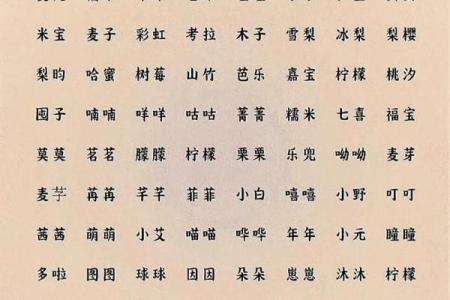 米宝 麦子 彩虹 考拉 木子 雪梨 冰梨 梨樱
梨昀 哈蜜 树莓 山竹 芭乐 嘉宝 柠檬 桃汐
囤子 喃喃 咩咩 咕咕 菁菁 糯米 七喜 福宝
莫莫 茗茗 朦朦 柠檬 栗栗 乐兜 呦呦 麦芽
麦芓 苒苒 芊芊 菲菲 小白 嘻嘻 小野 叮叮
茜茜 萌萌 小艾 喵喵 哗哗 年年 小元 瞳瞳
多啦 图图 球球 因因 朵朵 崽崽 沐沐 柠檬